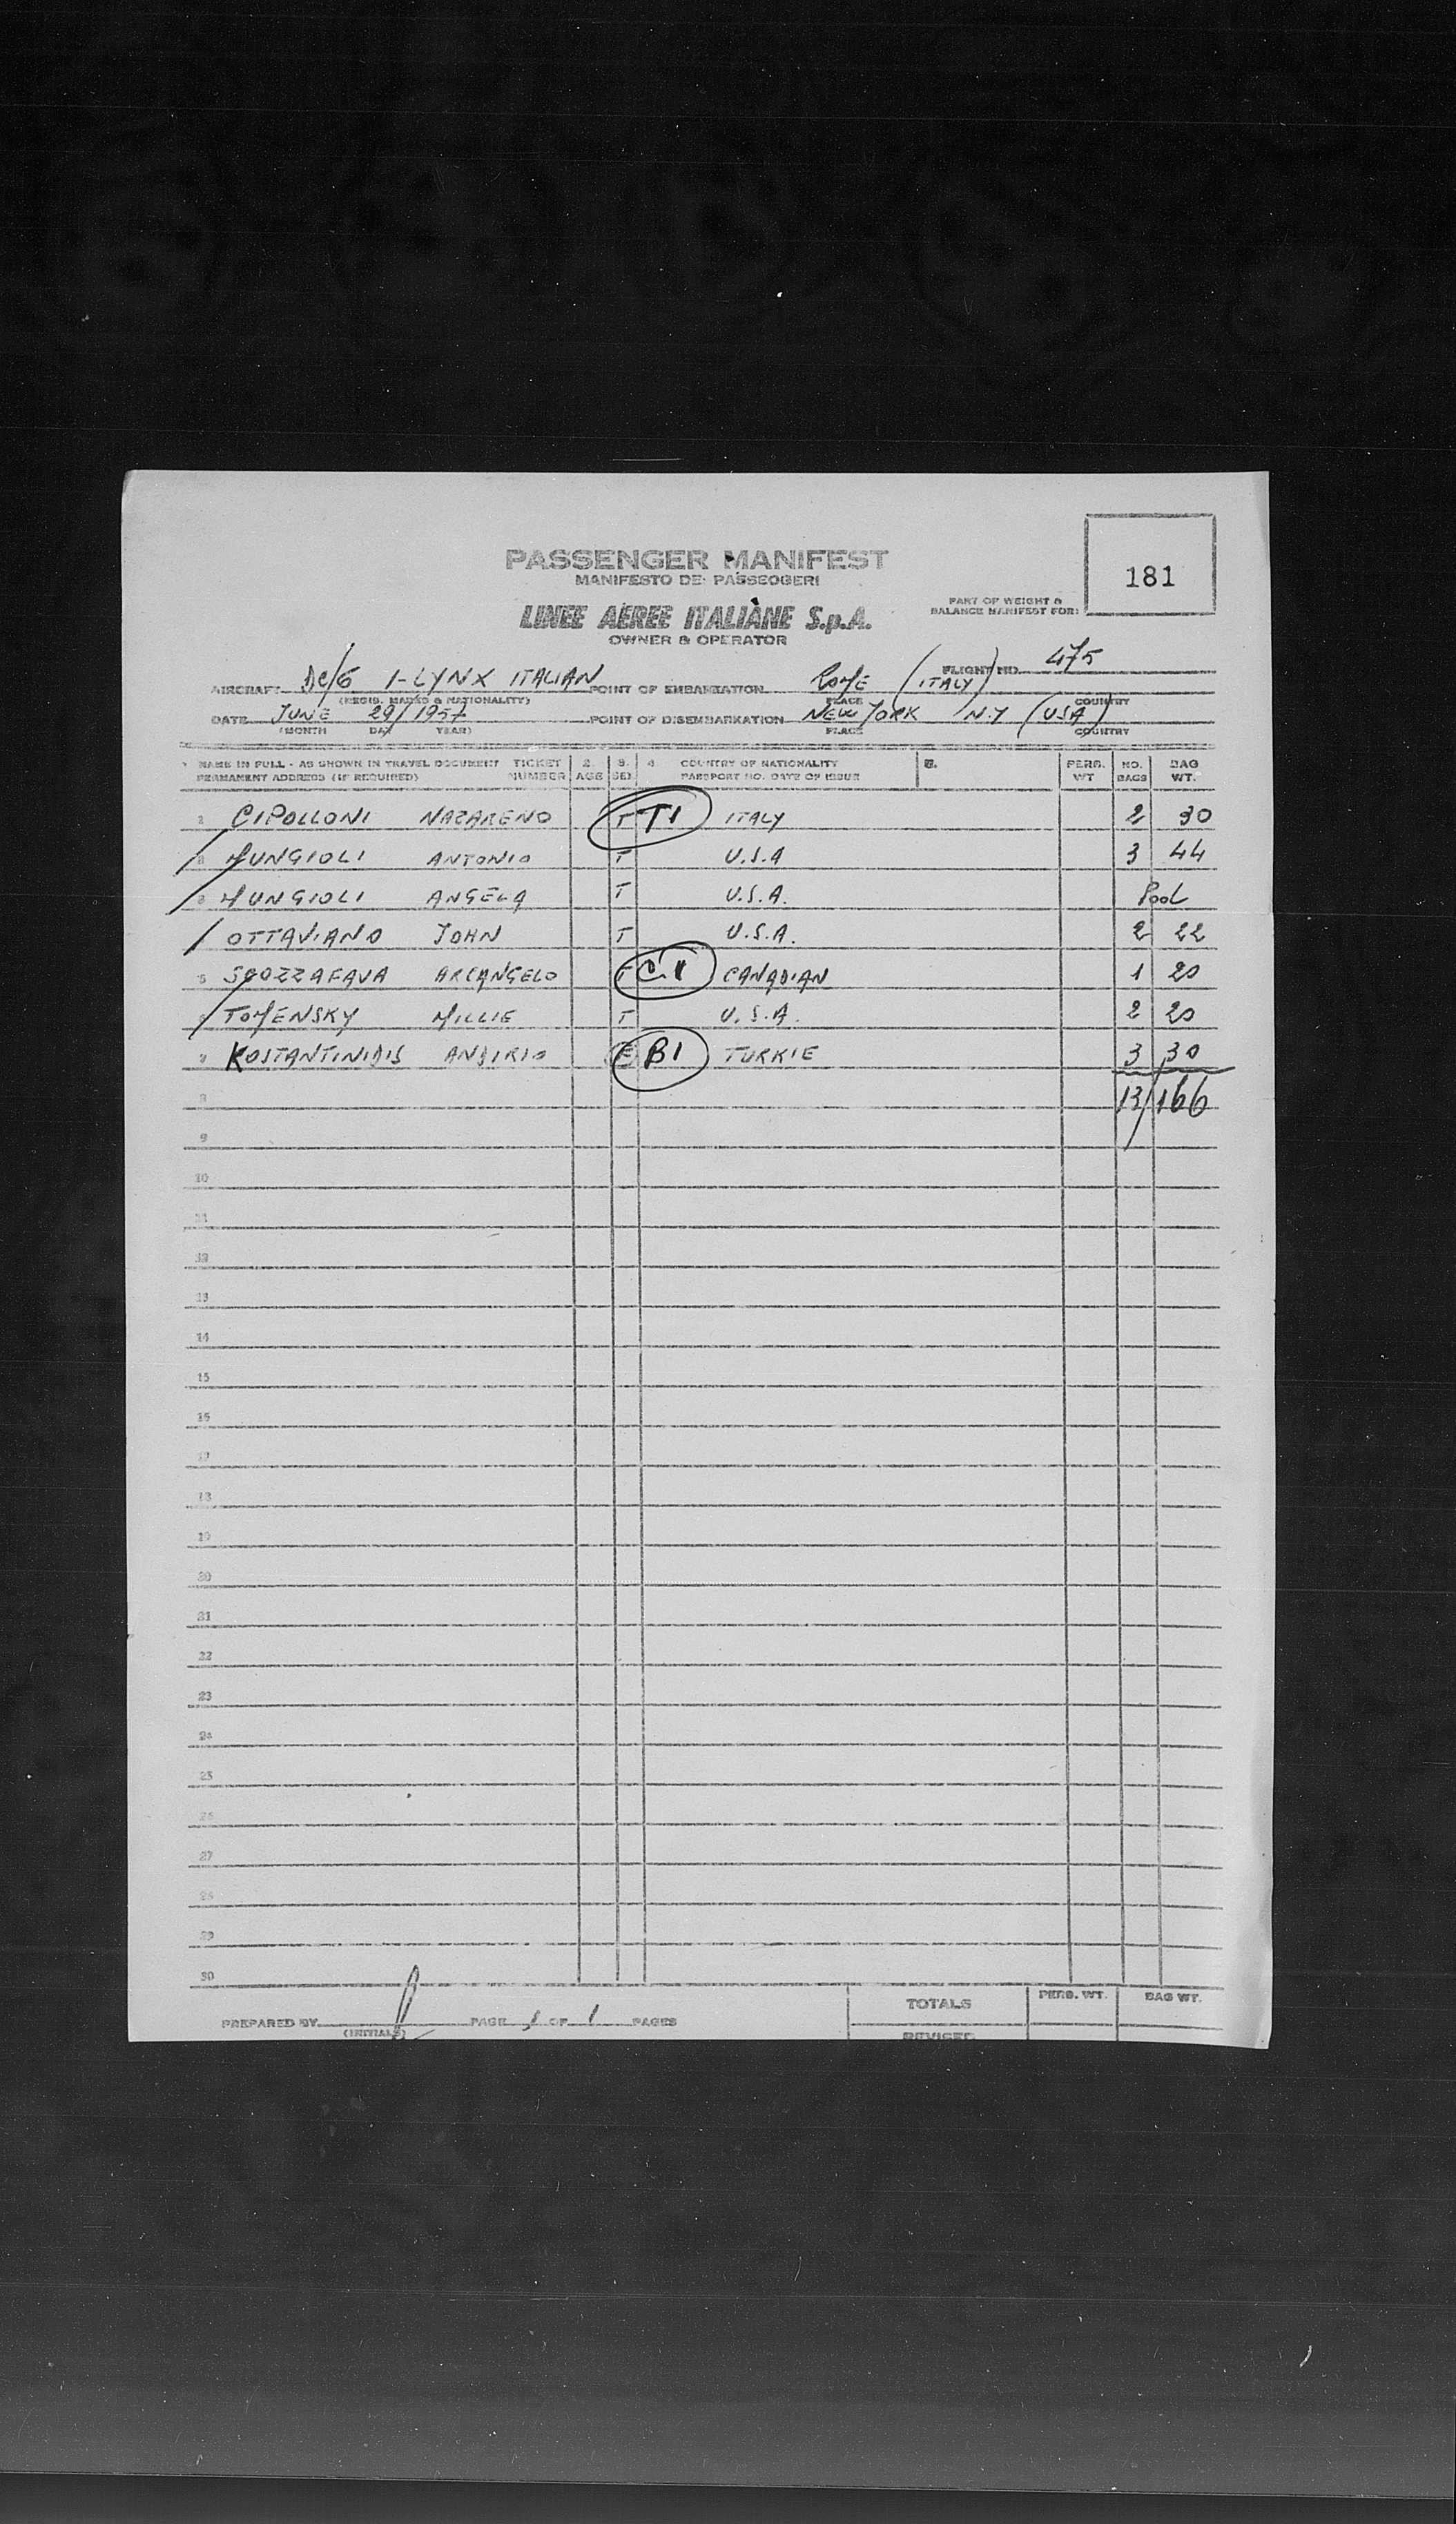 181
PASSENGER MANIFEST
MANIFESTO DEI PASSEGGERI
LINEE AEREE ITALIANE S.p.A.
OWNER & OPERATOR
PART OF WEIGHT &
BALANCE MANIFEST FOR:
FLIGHT NO. 475
AIRCRAFT DC/6 I-LYNX ITALIAN POINT OF EMBARKATION ROME (ITALY)
(REGIS. MARKS & NATIONALITY) PLACE COUNTRY
DATE JUNE 29/1957 POINT OF DISEMBARKATION NEW YORK N.Y (USA)
(MONTH DAY YEAR) PLACE COUNTRY
1 NAME IN FULL - AS SHOWN IN TRAVEL DOCUMENT TICKET 2. 3. 4 COUNTRY OF NATIONALITY 5. PERS. NO. BAG
PERMANENT ADDRESS (IF REQUIRED) NUMBER AGE SEX PASSPORT NO. DATE OF ISSUE WT BAGS WT.
1 CIPOLLONI NAZARENO T T1 ITALY 2 30
2 MUNGIOLI ANTONIO T U.S.A 3 44
3 MUNGIOLI ANGELA T U.S.A. Pool
OTTAVIANO JOHN T U.S.A. 2 22
5 SGOZZAFAVA ARCANGELO T C.1 CANADIAN 1 20
TOMENSKY MILLIE T U.S.A. 2 20
7 KOSTANTINIDIS ANDIRIO E B1 TURKIE 3 30
8 13/166
9
10
11
12
13
14
15
16
17
18
19
20
21
22
23
24
25
26
27
28
29
30
PREPARED BY (INITIALS) PAGE 1 OF 1 PAGES
TOTALS PERS. WT. BAG WT.
REVISED